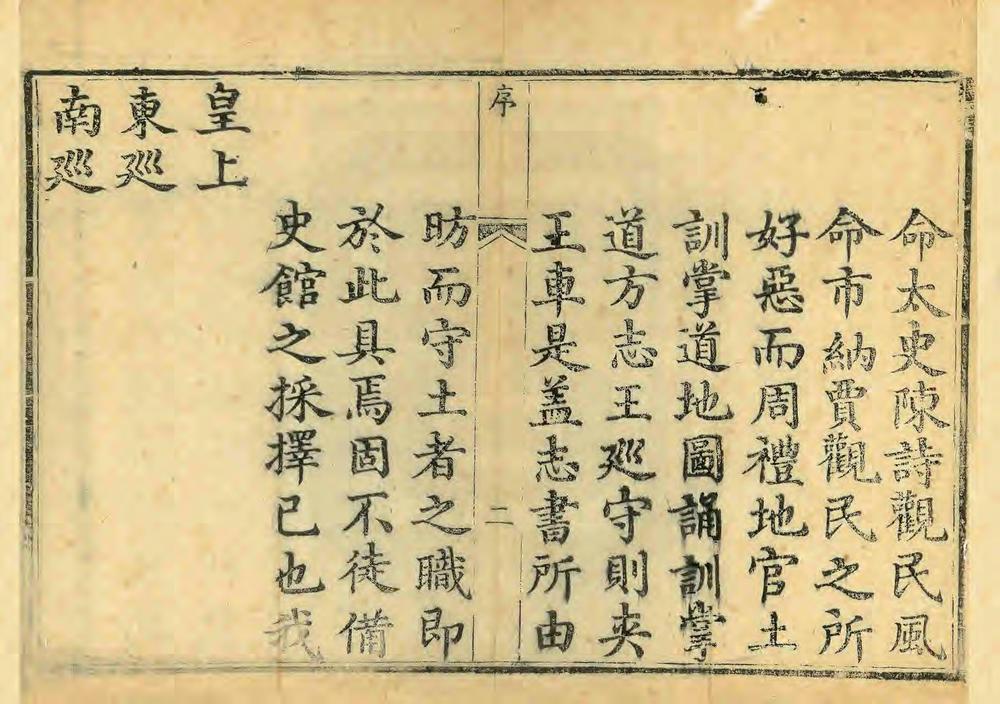 命太史陳詩觀民風
命市納賈觀民之所
好惡而周禮地官土
訓掌道地圖誦訓掌
道方志王廵守則夾
王車是盖志書所由
序
二
昉而守土者之職即
於此具焉固不徒備
史館之採擇已也我
皇上
東廵
南廵